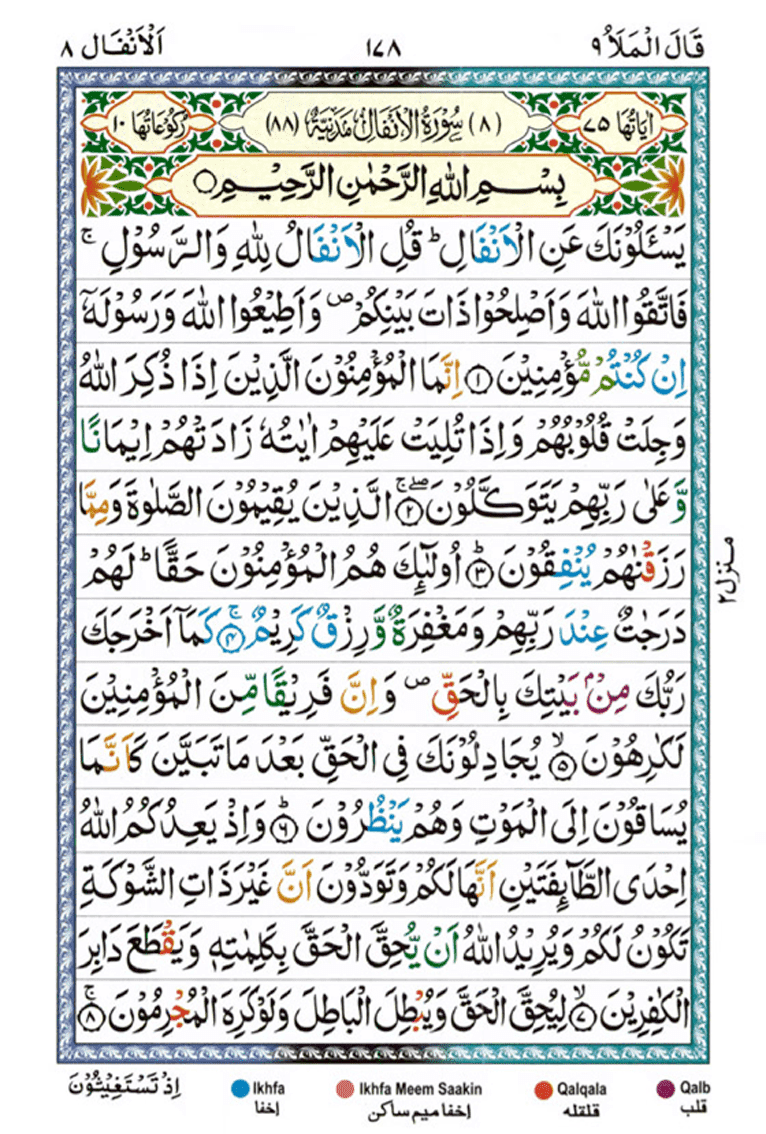 قَالَ الْمَلَاُ ٩ ١٧٨ اَلْاَنْفَال ٨
اٰیَاتُهَا ٧٥ (٨) سُوْرَةُ الْاَنْفَالِ مَدَنِیَّةٌ (٨٨) رُكُوْعَاتُهَا ١٠
بِسْمِ اللّٰهِ الرَّحْمٰنِ الرَّحِیْمِ ○
یَسْـَٔلُوْنَكَ عَنِ الْاَنْفَالِ ؕ قُلِ الْاَنْفَالُ لِلّٰهِ وَالرَّسُوْلِ ۚ
فَاتَّقُوا اللّٰهَ وَاَصْلِحُوْا ذَاتَ بَیْنِكُمْ ۪ وَاَطِیْعُوا اللّٰهَ وَرَسُوْلَهٗۤ
اِنْ كُنْتُمْ مُّؤْمِنِیْنَ ﴿١﴾ اِنَّمَا الْمُؤْمِنُوْنَ الَّذِیْنَ اِذَا ذُكِرَ اللّٰهُ
وَجِلَتْ قُلُوْبُهُمْ وَاِذَا تُلِیَتْ عَلَیْهِمْ اٰیٰتُهٗ زَادَتْهُمْ اِیْمَانًا
وَّعَلٰی رَبِّهِمْ یَتَوَكَّلُوْنَ ﴿٢﴾ۚۖ الَّذِیْنَ یُقِیْمُوْنَ الصَّلٰوةَ وَمِمَّا
رَزَقْنٰهُمْ یُنْفِقُوْنَ ﴿٣﴾ؕ اُولٰٓئِكَ هُمُ الْمُؤْمِنُوْنَ حَقًّا ؕ لَهُمْ
دَرَجٰتٌ عِنْدَ رَبِّهِمْ وَمَغْفِرَةٌ وَّرِزْقٌ كَرِیْمٌ ﴿٤﴾ۚ كَمَاۤ اَخْرَجَكَ
رَبُّكَ مِنْۢ بَیْتِكَ بِالْحَقِّ ۪ وَاِنَّ فَرِیْقًا مِّنَ الْمُؤْمِنِیْنَ
لَكٰرِهُوْنَ ﴿٥﴾ۙ یُجَادِلُوْنَكَ فِی الْحَقِّ بَعْدَ مَا تَبَیَّنَ كَاَنَّمَا
یُسَاقُوْنَ اِلَی الْمَوْتِ وَهُمْ یَنْظُرُوْنَ ﴿٦﴾ؕ وَاِذْ یَعِدُكُمُ اللّٰهُ
اِحْدَی الطَّآئِفَتَیْنِ اَنَّهَا لَكُمْ وَتَوَدُّوْنَ اَنَّ غَیْرَ ذَاتِ الشَّوْكَةِ
تَكُوْنُ لَكُمْ وَیُرِیْدُ اللّٰهُ اَنْ یُّحِقَّ الْحَقَّ بِكَلِمٰتِهٖ وَیَقْطَعَ دَابِرَ
الْكٰفِرِیْنَ ﴿٧﴾ۙ لِیُحِقَّ الْحَقَّ وَیُبْطِلَ الْبَاطِلَ وَلَوْ كَرِهَ الْمُجْرِمُوْنَ ﴿٨﴾ۚ
منزل ٢
اِذْ تَسْتَغِیْثُوْنَ
Ikhfa Ikhfa Meem Saakin Qalqala Qalb
إخفا إخفا ميم ساكن قلقله قلب